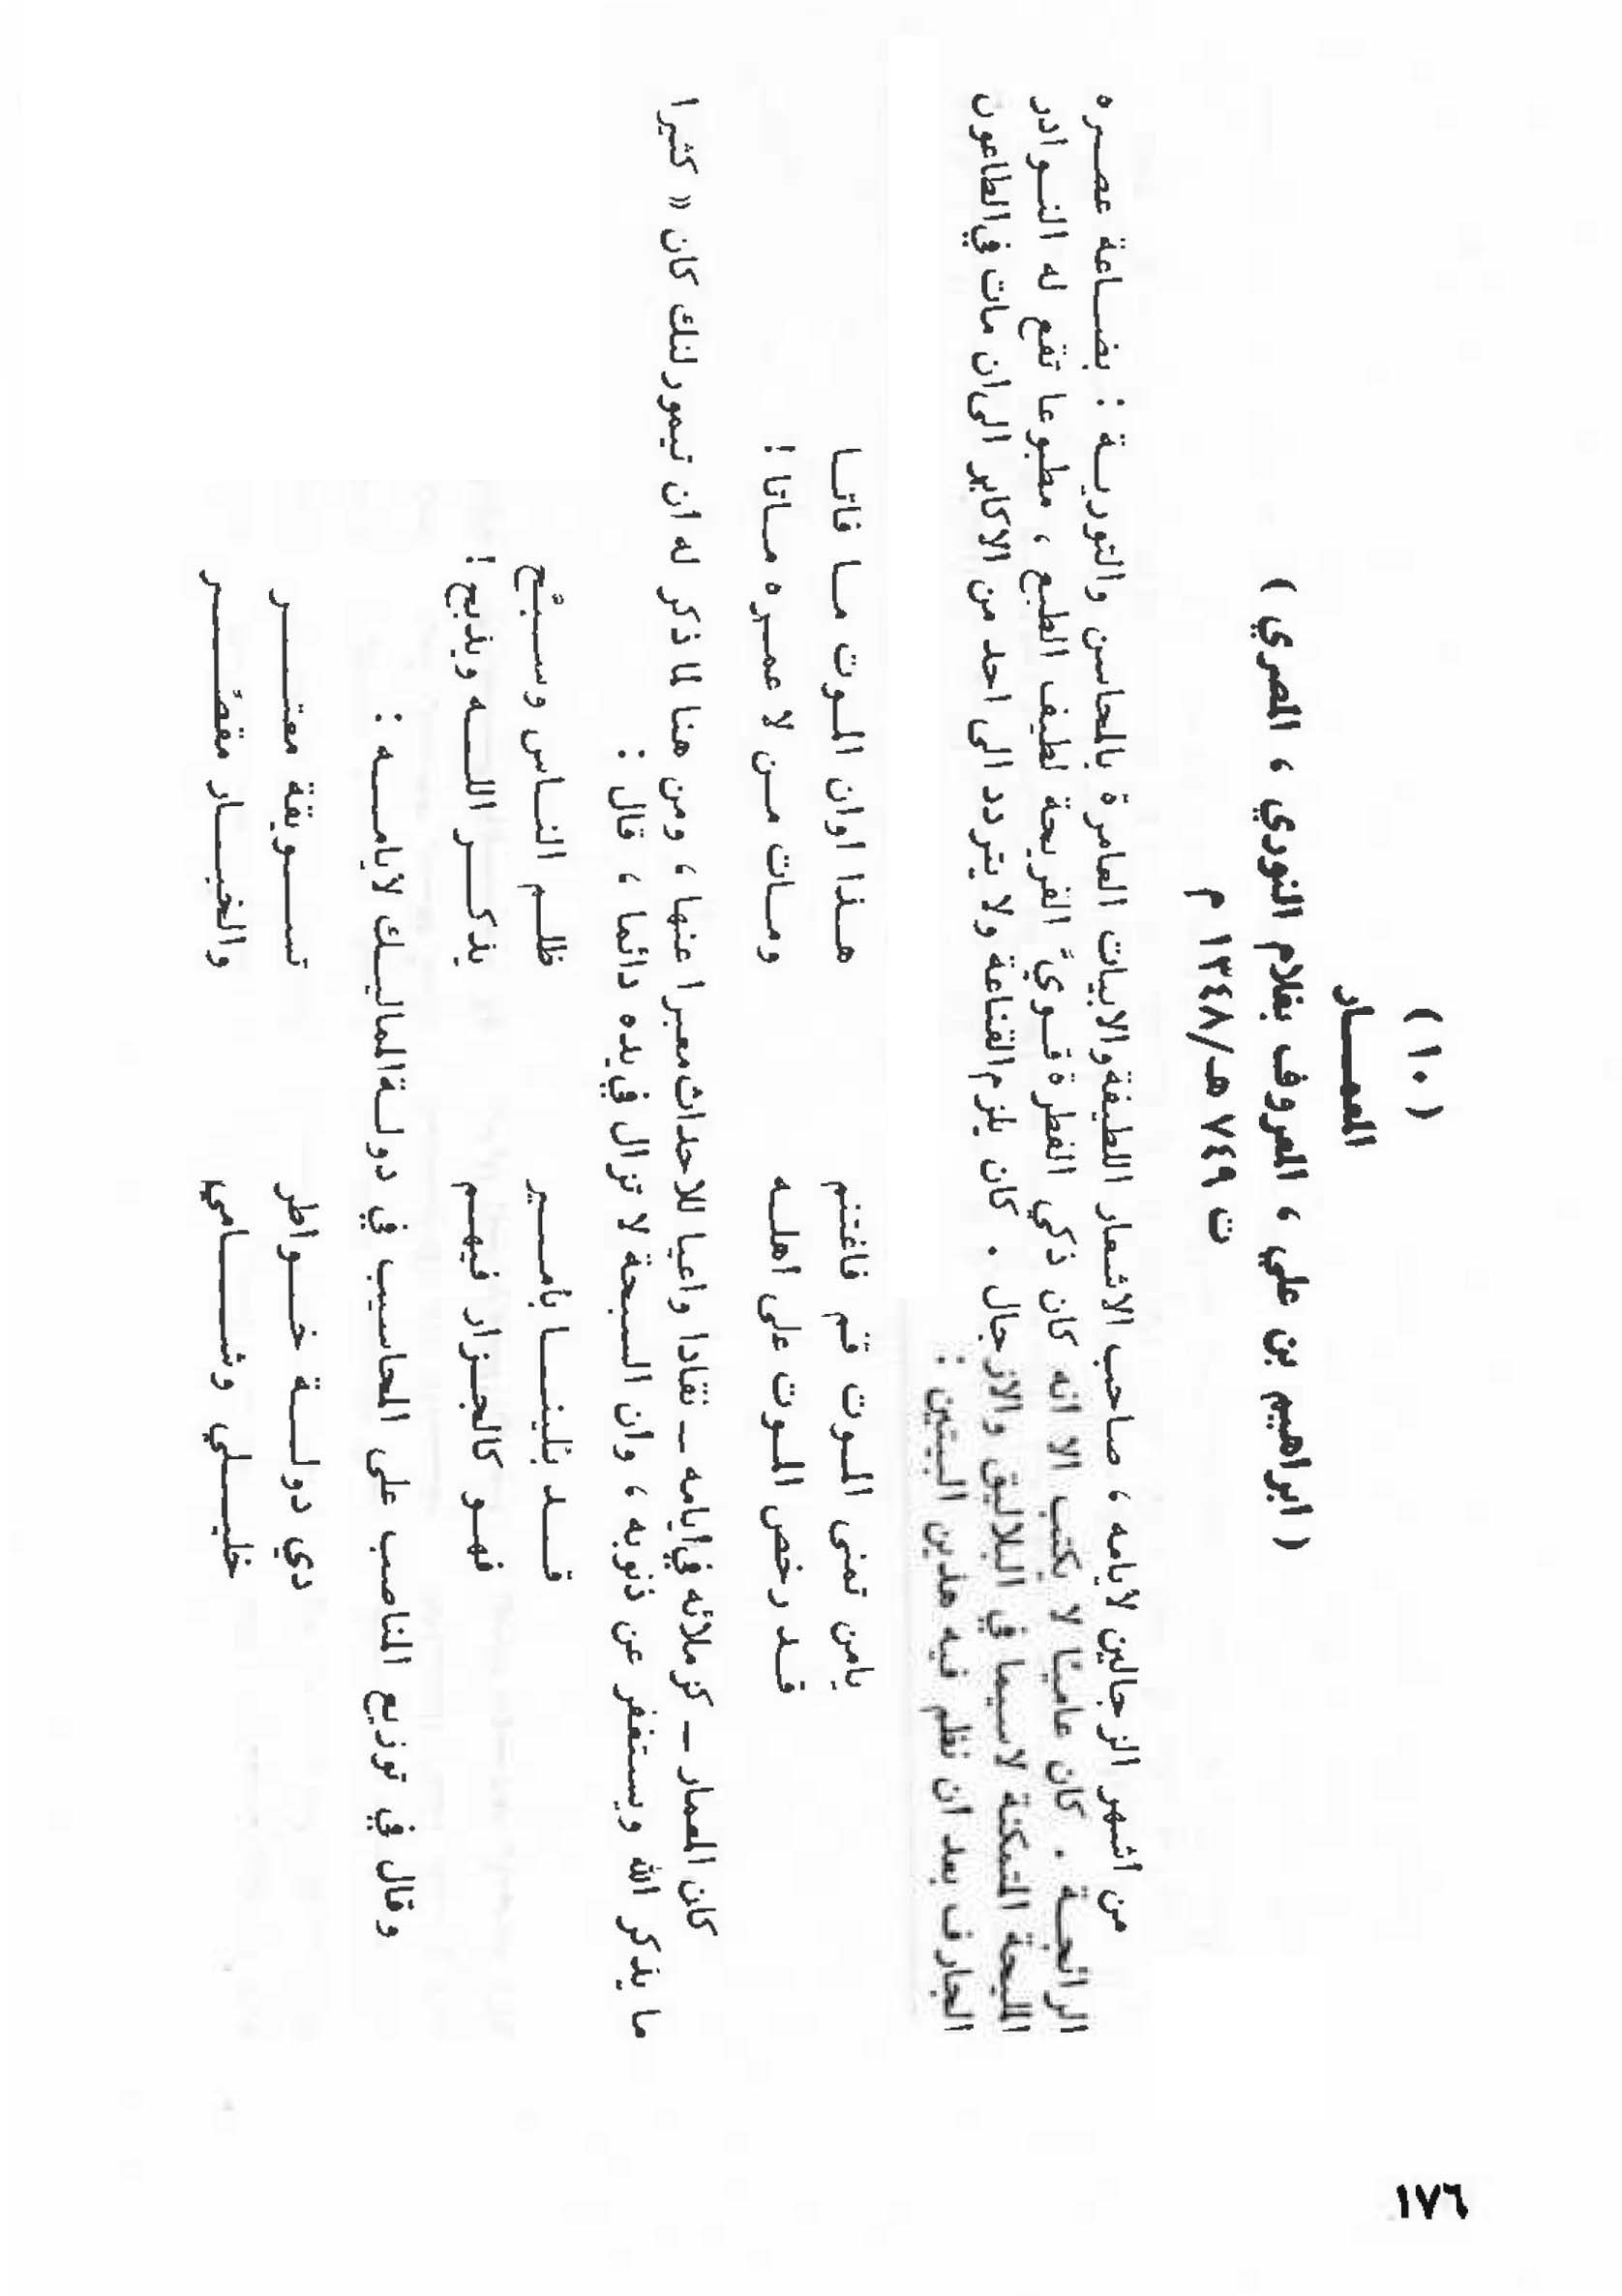 ( ١٠ )
المعمــار
( ابراهيم بن علي ، المعروف بغلام النوري ، المصري )
ت ٧٤٩ هـ/١٣٤٨ م
من اشهر الزجالين لأيامه ، صاحب الاشعار اللطيفة والابيات العامرة بالمحاسن والتوريــة : بضــاعة عصـره
الرائجــة . كان عاميّا لا يكتب الا انه كان ذكي الفطرة قــويّ القريحة لطيف الطبع ، مطبوعا تقع له النــوادر
المليحة المتمكنة لاسيما في البلاليق والازجال . كان يلزم القناعة ولا يتردد الى احد من الاكابر الى ان مات في الطاعون
الجارف بعد ان نظم فيه هذين البيتين :
يامن تمنى المـوت قم فاغتنم هـذا اوان المـوت مـا فاتـا
قـد رخص المـوت على اهلـه ومـات مـن لا عمـره مـاتا !
كان المعمار ــ كزملائه في ايامه ــ نقادا واعيا للاحداث معبرا عنها ، ومن هنا لما ذكر له ان تيمورلنك كان « كثيرا
ما يذكر الله ويستغفر عن ذنوبه ، وان السبحة لا تزال في يده دائما ، قال :
قــد بلينــا بأمــير ظلـم النـاس وسـبّح
فهـو كالجـزار فيهـم يذكــر اللــه ويذبح !
وقال في توزيع المناصب على المحاسيب في دولــة المماليـك لأيامــه :
دي دولــة خــواطر تســويقة معتــــر
خليــلي وشــــامي والخيــار مقصّــــر
١٧٦